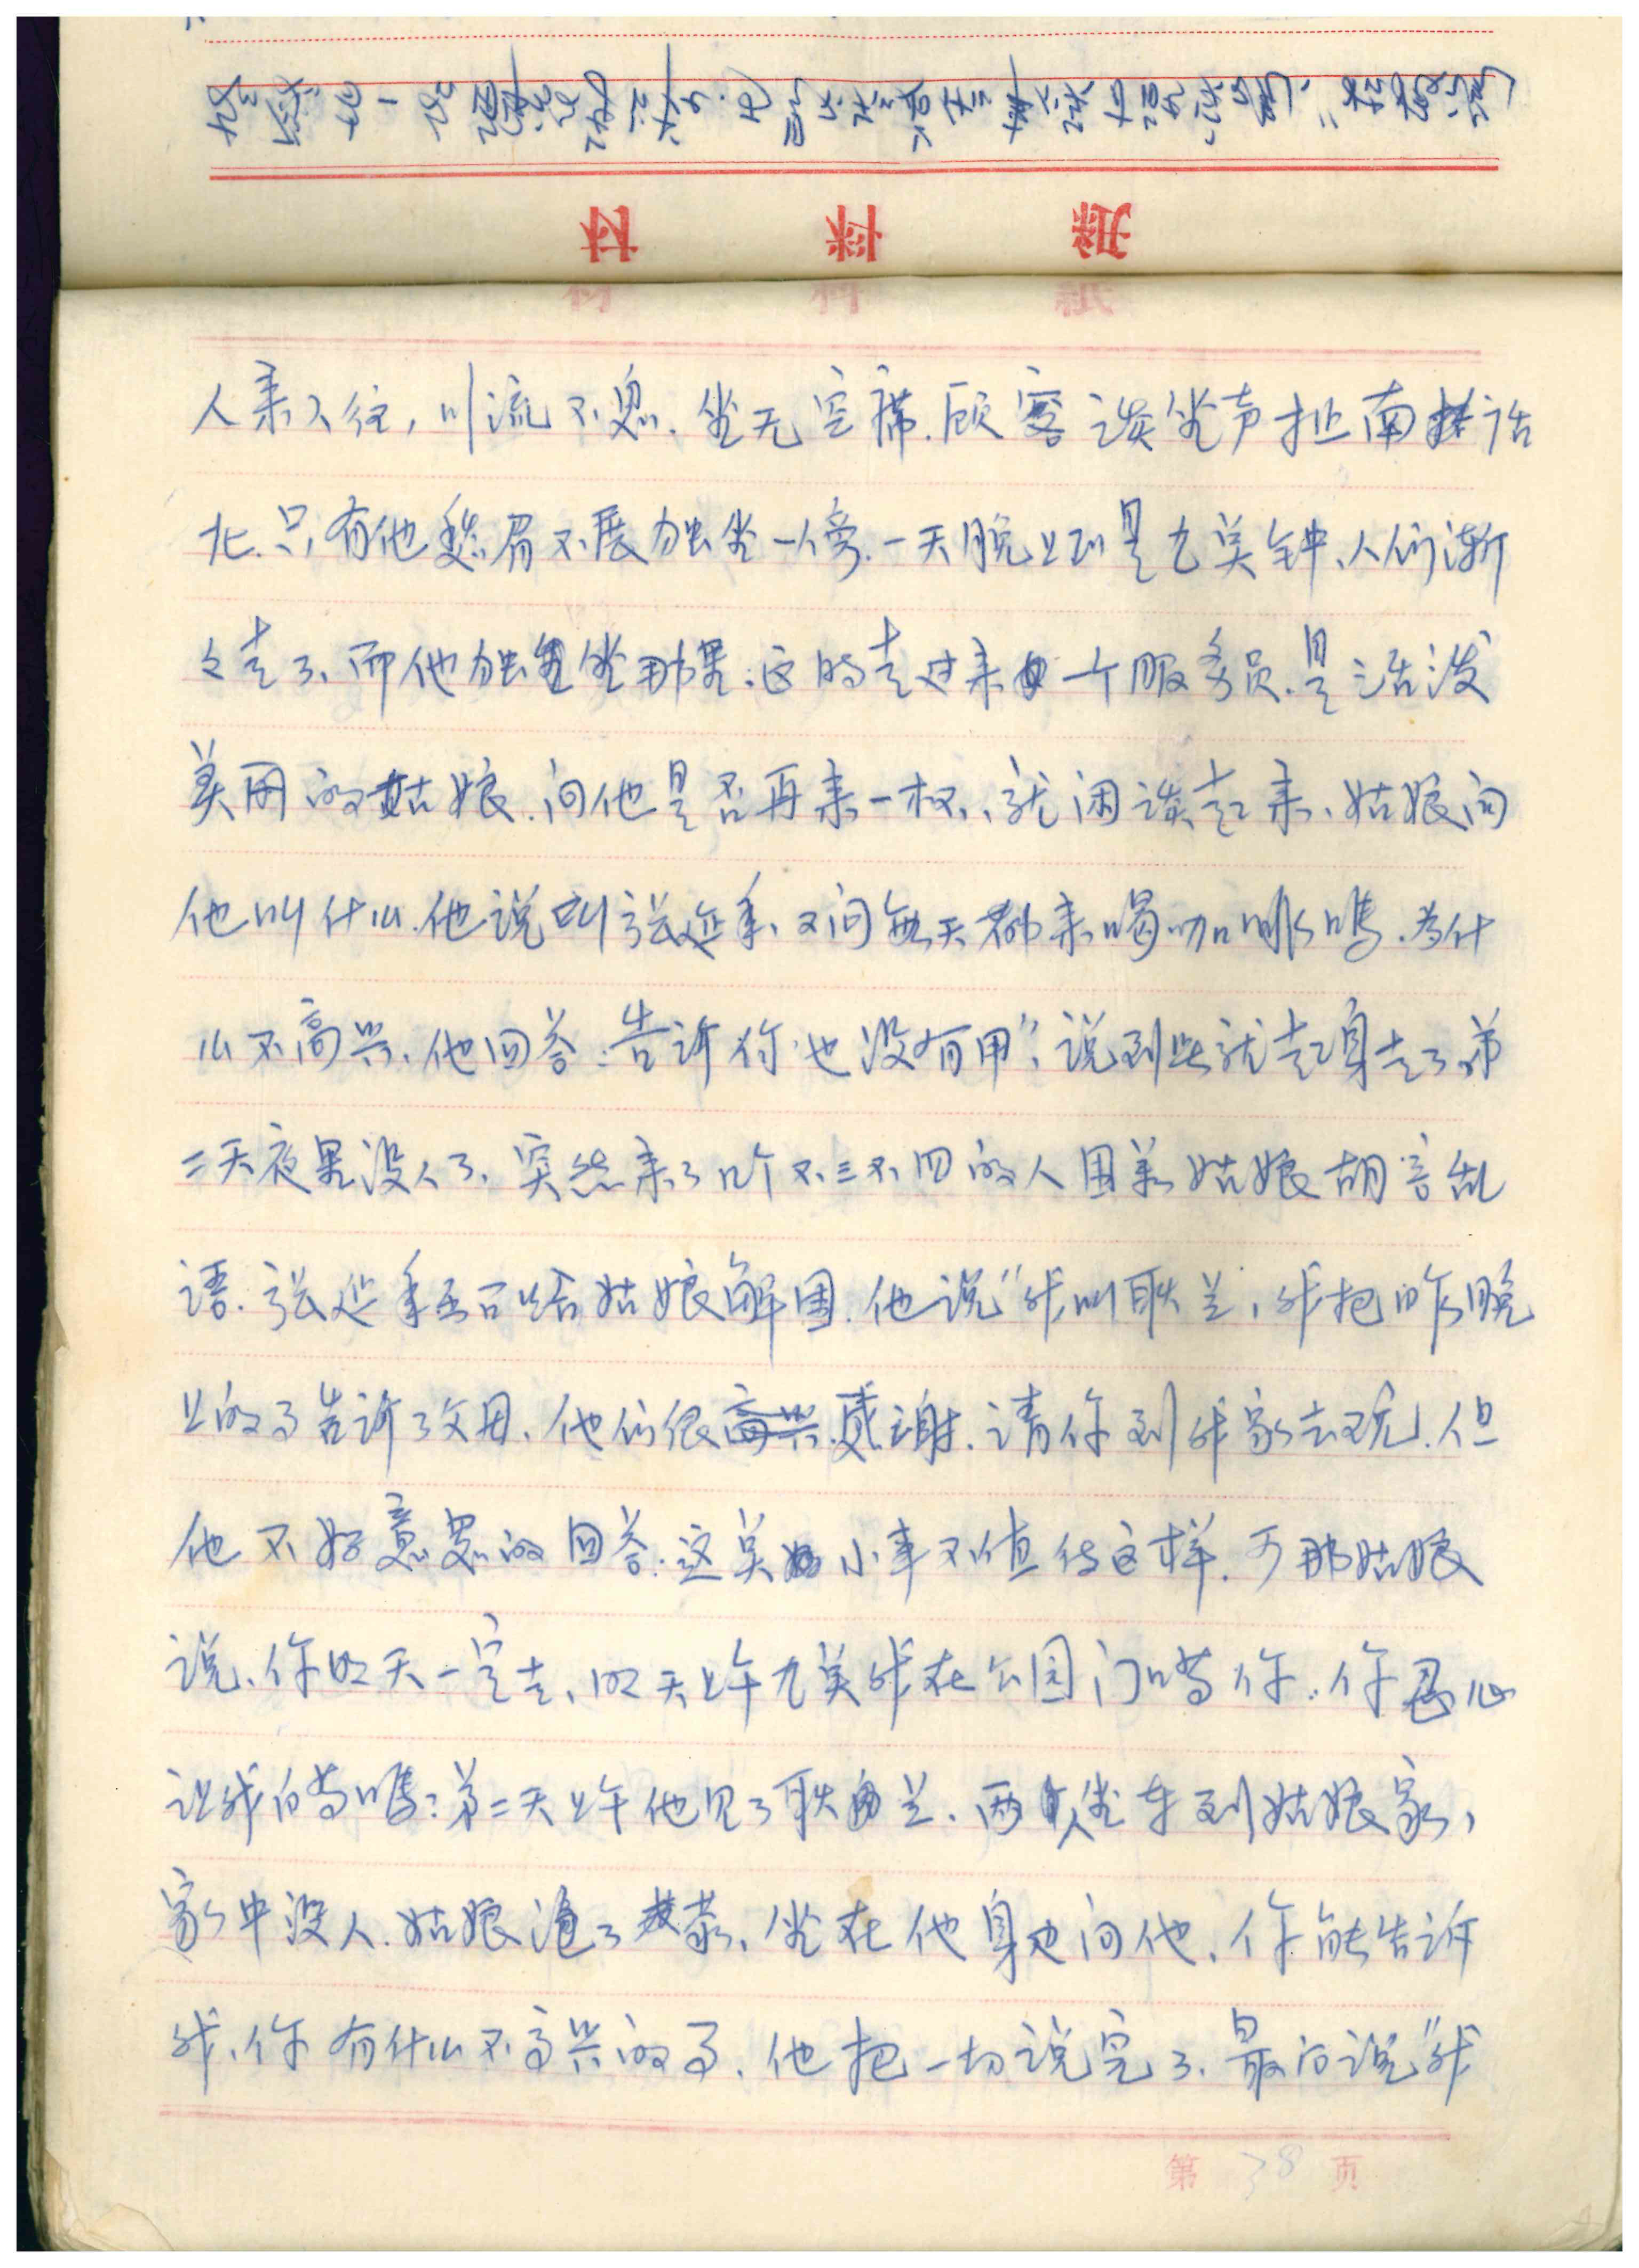 材料紙
人来人往，川流不息．坐无空席．顾客谈笑声扯南话
北．只有他愁眉不展独坐一傍．一天晚上到是九点钟、人们渐
々走了、而他独坐那里．这时走过来一个服务员．是活泼
美丽的姑娘．问他是否再来一杯、就闲谈起来、姑娘问
他叫什么．他说叫张延年、又问每天都来喝咖啡吗．为什
么不高兴、他回答：告诉你也没有用"、说到此就起身走了、第
二天夜里没人了、突然来了几个不三不四的人围着姑娘胡言乱
语．张延年 给姑娘解围．他说"我叫耿兰，我把昨晚
上的事告诉了父母、他们很感谢．请你到我家去玩．但
他不好意思的回答．这点小事不值得这样．可那姑娘
说、你明天一定去、明天上午九点我在公园门口等你．你忍心
让我白等吗？第二天上午他见了耿兰．两人坐车到姑娘家，
家中没人．姑娘沧了茶、坐在他身边问他、你能告诉
我、你有什么不高兴的事、他把一切说完了．最后说"我
第38页